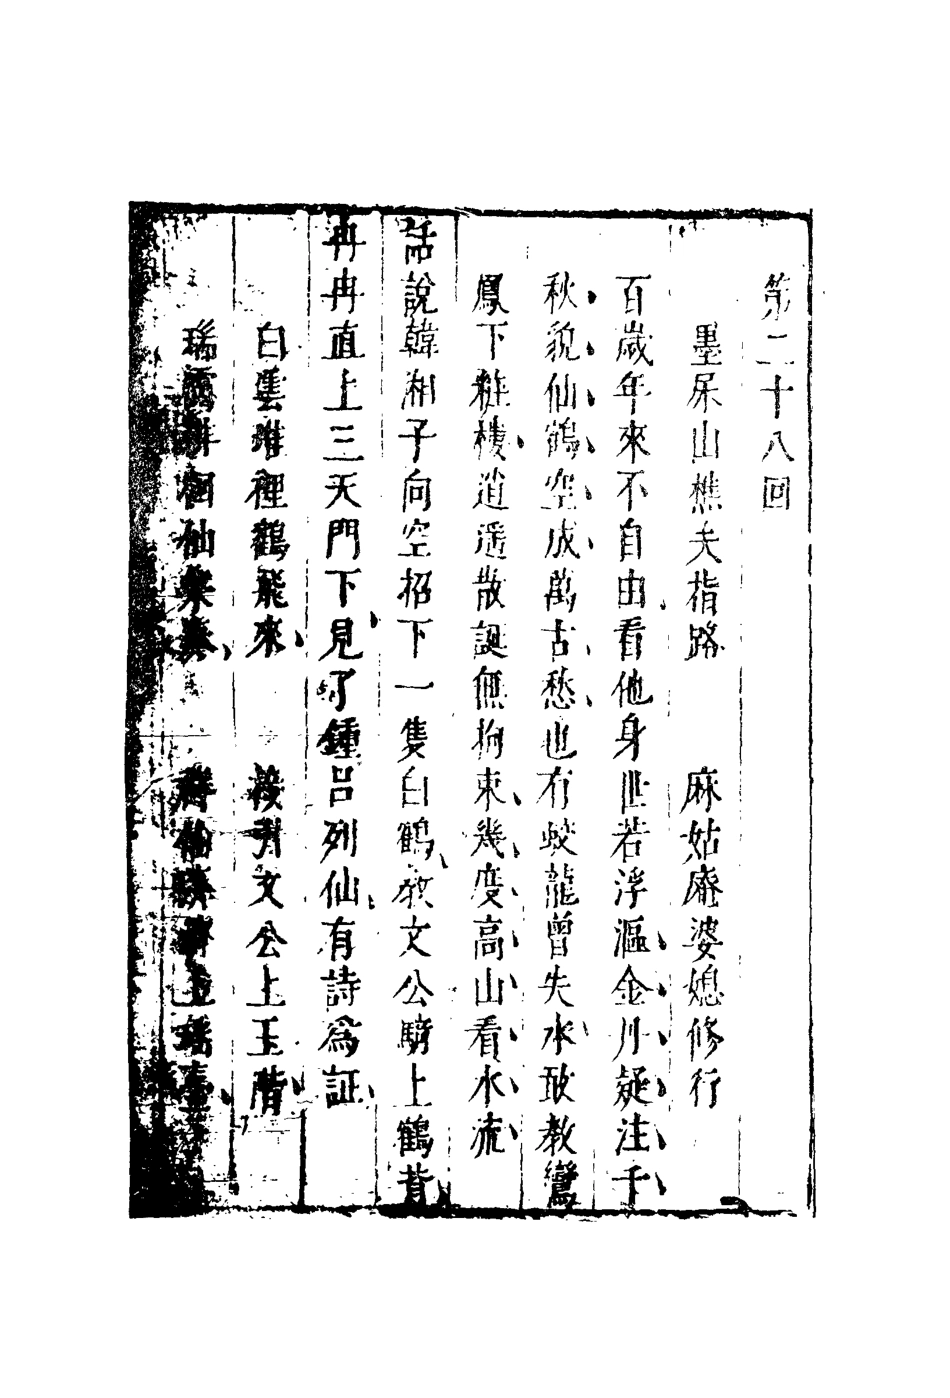 第二十八回
墨㞎山樵夫指路　麻姑庵婆媳修行
百歲年來不自由看他身世若浮漚金丹疑注千
秋貌仙鶴空成萬古愁也有蛟龍曾失水敢教鸞
鳳下粧樓逍遥散誕無拘束幾度高山看水流
話說韓湘子向空招下一隻白鶴教文公騎上鶴背
冉冉直上三天門下見了鍾呂列仙有詩爲証
白雲堆裡鶴飛來　接引文公上玉階
瑞靄 仙樂奏　群 上瑶臺